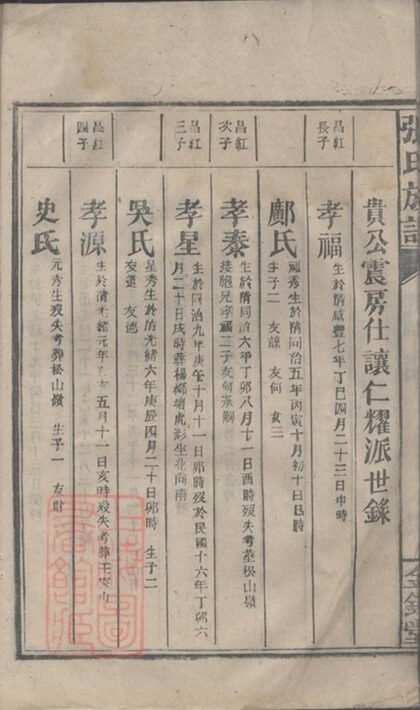 張氏族譜
金鑑堂
貴公震房仕讓仁耀派世錄
昌紅長子
孝福
生於清咸豐七年丁巳四月二十三日申時
鄺氏
福秀生於清同治五年丙寅十月初十日巳時
生子二 友諒 友何 女三
昌紅次子
孝泰
生於清同治六年丁卯八月十一日酉時歿失考葬松山嶺
接胞兄孝福二子友何承嗣
昌紅三子
孝星
生於同治九年庚午十月十一日卯時歿於民國十六年丁卯六
月二十日戌時葬楊梅塘虎形坐北向南
吳氏
星秀生於清光緒六年庚辰四月二十日卯時 生子二
友選 友德
昌紅四子
孝源
生於清光緒元年乙亥五月十一日亥時歿失考葬王家山
史氏
元秀生歿失考葬松山嶺 生子一 友財